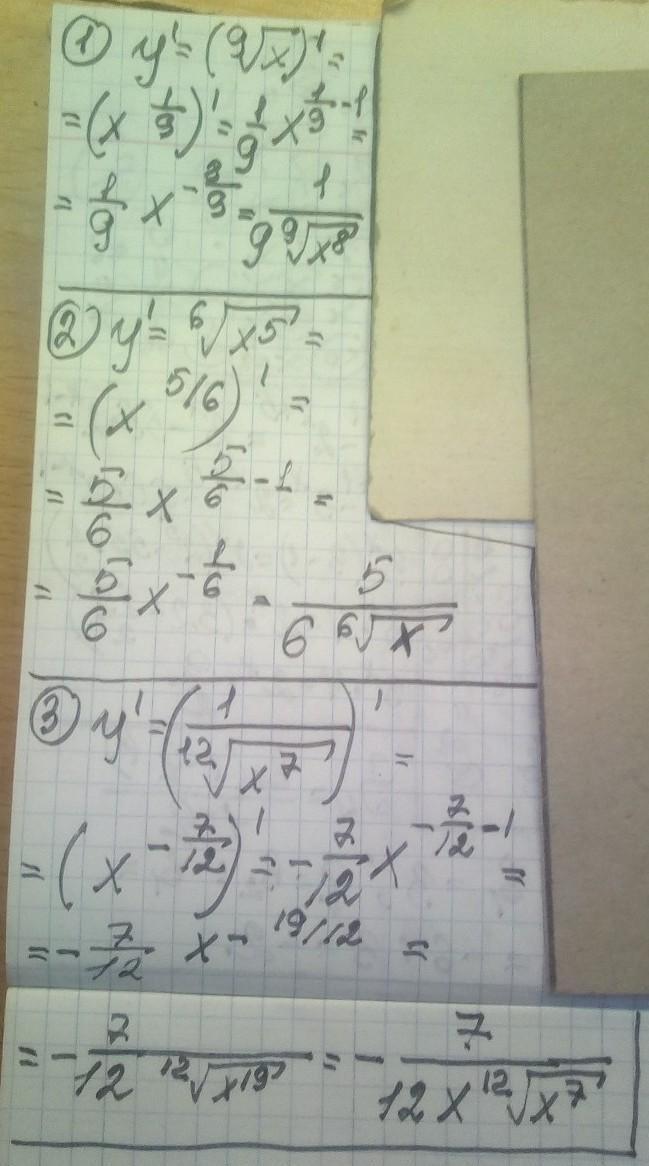 ① y' = (⁹√x)' =
= (x^(1/9))' = 1/9 x^(1/9 - 1) =
= 1/9 x^(-8/9) = 1/(9 ⁹√(x⁸))
② y' = ⁶√(x⁵) =
= (x^(5/6))' =
= 5/6 x^(5/6 - 1) =
= 5/6 x^(-1/6) - 5/(6 ⁶√x)
③ y' = (1/(¹²√(x⁷)))' =
= (x^(-7/12))' = -7/12 x^(-7/12 - 1) =
= -7/12 x^(-19/12) =
= -7/(12 ¹²√(x¹⁹)) = -7/(12x ¹²√(x⁷))